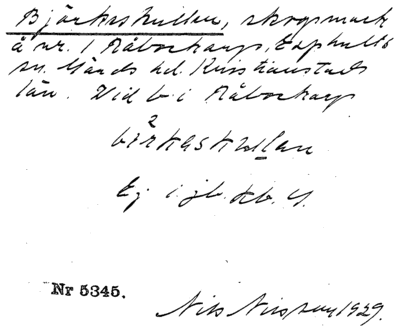 Björkaskullen, skogsmark
å nr. 1 Råbockarp, Eaphults
sn. Gärds hd. Kristianstads
län. Vid b. i Råbockarp
bi²rkaskulan
Ej i jb. kb. U.
Nr 5345.
Nils Nilsson 1929.